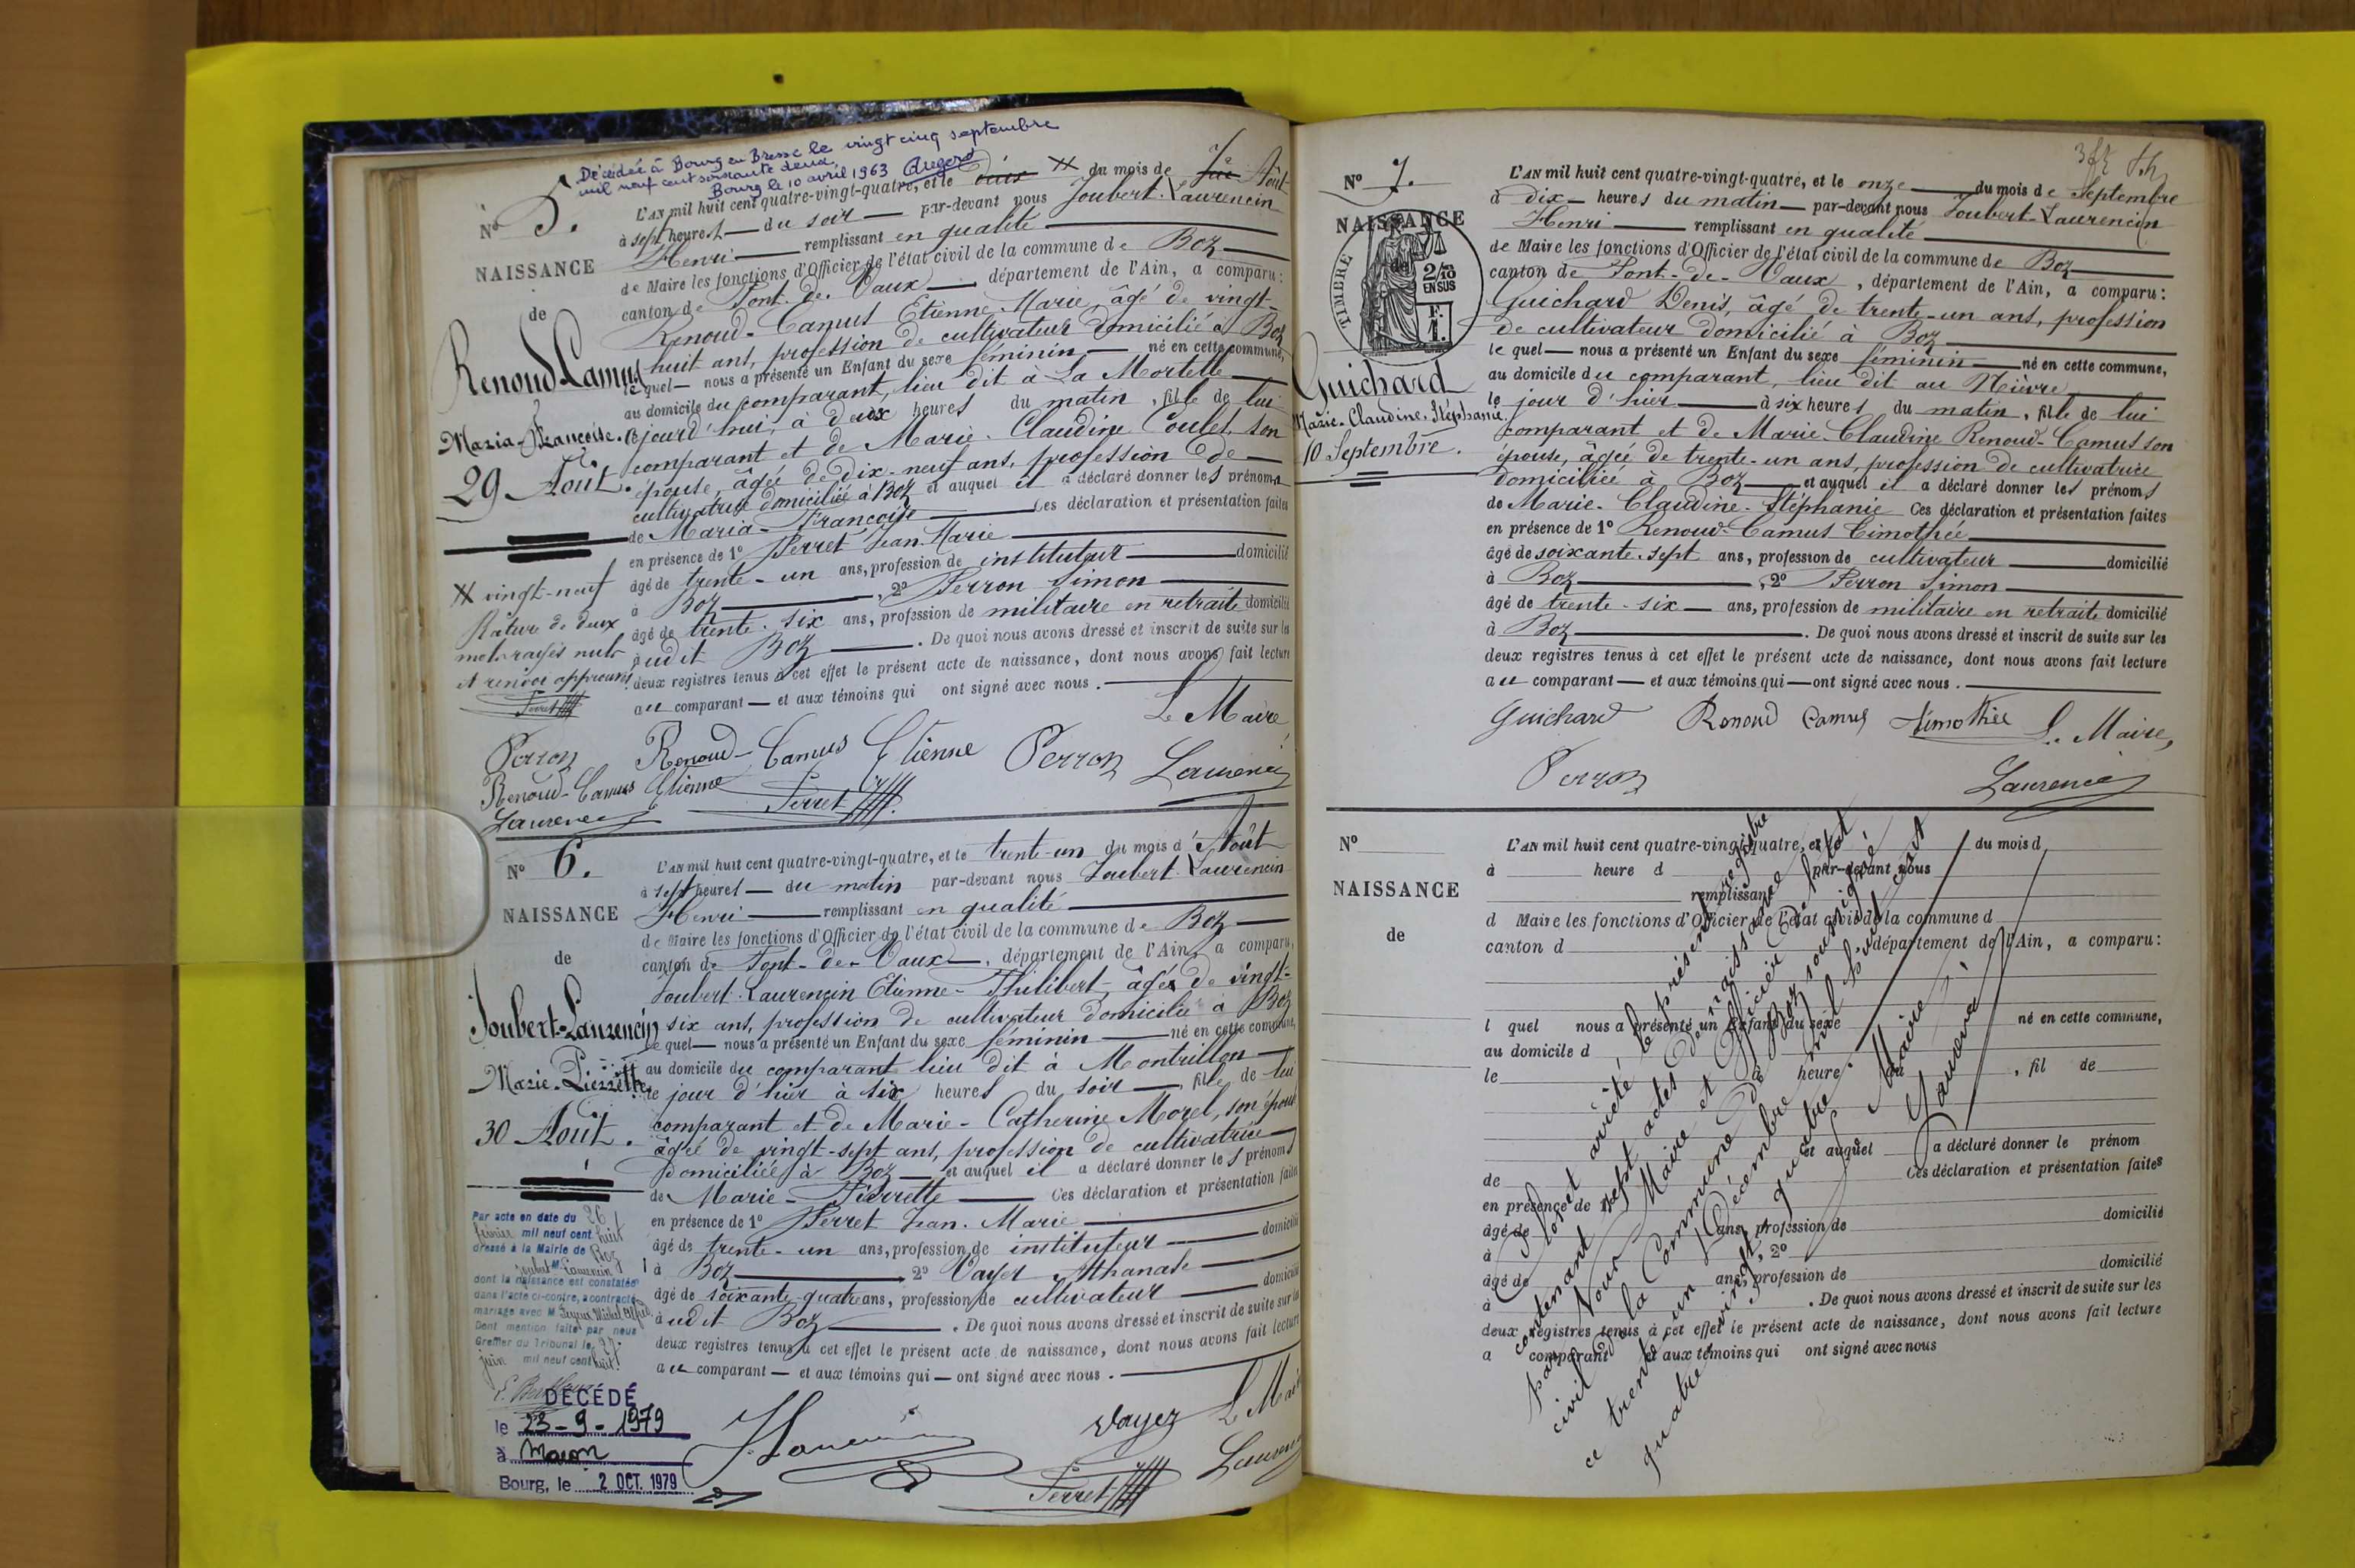 Décédée à Bourg en Bresse le vingt cinq septembre
mil neuf cent soixante deux.
Bourg le 10 avril 1963
N° 5.
NAISSANCE
de
Renoud-Camus
Maria-Françoise.
29 Août.
L'AN mil huit cent quatre-vingt-quatre, et le deux X du mois de 7e Août
à sept heures du soir par-devant nous Joubert-Laurencin
Henri remplissant en qualité
de Maire les fonctions d'Officier de l'état civil de la commune de Boz
canton de Pont-de-Vaux département de l'Ain, a comparu:
Renoud-Camus Etienne-Marie, âgé de vingt-
huit ans, profession de cultivateur domicilié à Boz
lequel nous a présenté un Enfant du sexe féminin né en cette commune,
au domicile du comparant, lieu dit à La Mortelle
cejourd'hui, à deux heures du matin, fille de lui
comparant et de Marie-Claudine Coulet, son
épouse, âgée de dix-neuf ans, profession de
cultivatrice domiciliée à Boz et auquel il a déclaré donner les prénoms
de Maria-Françoise Ces déclaration et présentation faites
en présence de 1° Perret Jean-Marie
âgé de trente-un ans, profession de instituteur domicilié
à Boz, 2° Perron Simon
âgé de trente-six ans, profession de militaire en retraite domicilié
audit Boz. De quoi nous avons dressé et inscrit de suite sur les
deux registres tenus à cet effet le présent acte de naissance, dont nous avons fait lecture
au comparant et aux témoins qui ont signé avec nous.
X vingt-neuf
Rature de deux
mots rayés nuls
et renvoi approuvés
Perret
Perron
Renoud-Camus Etienne
Laurencin
Le Maire
Renoud-Camus Etienne Perron Laurencin
Perret
N° 6.
NAISSANCE
de
Joubert-Laurencin
Marie-Pierrette.
30 Août.
L'AN mil huit cent quatre-vingt-quatre, et le trente-un du mois d'Août
à sept heures du matin par-devant nous Joubert-Laurencin
Henri remplissant en qualité
de Maire les fonctions d'Officier de l'état civil de la commune de Boz
canton de Pont-de-Vaux, département de l'Ain, a comparu,
Joubert-Laurencin Etienne-Philibert, âgé de vingt-
six ans, profession de cultivateur domicilié à Boz
lequel nous a présenté un Enfant du sexe féminin né en cette commune,
au domicile du comparant lieu dit à Montrillon
le jour d'hier à six heures du soir, fille de lui
comparant et de Marie-Catherine Morel, son épouse
âgée de vingt-sept ans, profession de cultivatrice
domiciliée à Boz et auquel il a déclaré donner les prénoms
de Marie-Pierrette Ces déclaration et présentation faites
en présence de 1° Perret Jean-Marie
âgé de trente-un ans, profession de instituteur domicilié
à Boz 2° Vayer Athanase
âgé de soixante-quatre ans, profession de cultivateur domicilié
audit Boz. De quoi nous avons dressé et inscrit de suite sur les
deux registres tenus à cet effet le présent acte de naissance, dont nous avons fait lecture
au comparant et aux témoins qui ont signé avec nous.
Par acte en date du 26
février mil neuf cent huit
dressé à la Mairie de Boz
Joubert-Laurencin
dont la naissance est constatée
dans l'acte ci-contre, a contracté
mariage avec M
Dont mention faite par nous
Greffier du Tribunal le 27
juin mil neuf cent huit
DÉCÉDÉ
le 23-9-1979
à Macon
Bourg, le 2 OCT. 1979
Vayer Le Maire
Perret Laurencin
N° 7.
NAISSANCE
de
TIMBRE
2/10
EN SUS
F.
1.
Guichard
Marie-Claudine-Stéphanie.
10 Septembre.
L'AN mil huit cent quatre-vingt-quatre, et le onze du mois de Septembre
à dix heures du matin par-devant nous Joubert-Laurencin
Henri remplissant en qualité
de Maire les fonctions d'Officier de l'état civil de la commune de Boz
canton de Pont-de-Vaux, département de l'Ain, a comparu:
Guichard Denis, âgé de trente-un ans, profession
de cultivateur domicilié à Boz
lequel nous a présenté un Enfant du sexe féminin né en cette commune,
au domicile du comparant, lieu dit au Nièvre
le jour d'hier à six heures du matin, fille de lui
comparant et de Marie-Claudine Renoud-Camus son
épouse, âgée de trente-un ans, profession de cultivatrice
domiciliée à Boz et auquel il a déclaré donner les prénoms
de Marie-Claudine-Stéphanie Ces déclaration et présentation faites
en présence de 1° Renoud-Camus Timothée
âgé de soixante-sept ans, profession de cultivateur domicilié
à Boz, 2° Perron Simon
âgé de trente-six ans, profession de militaire en retraite domicilié
à Boz. De quoi nous avons dressé et inscrit de suite sur les
deux registres tenus à cet effet le présent acte de naissance, dont nous avons fait lecture
au comparant et aux témoins qui ont signé avec nous.
Guichard Renoud Camus Timothée Le Maire,
Perron Laurencin
N°
NAISSANCE
de
L'AN mil huit cent quatre-vingt-quatre, et le du mois d
à heure d par-devant nous
remplissant
d Maire les fonctions d'Officier de l'état civil de la commune d
canton d département de l'Ain, a comparu:
l quel nous a présenté un Enfant du sexe né en cette commune,
au domicile d
le à heure du, fil de
et auquel a déclaré donner le prénom
de Ces déclaration et présentation faites
en présence de 1°
âgé de ans, profession de domicilié
à, 2°
âgé de ans, profession de domicilié
à. De quoi nous avons dressé et inscrit de suite sur les
deux registres tenus à cet effet le présent acte de naissance, dont nous avons fait lecture
a comparant et aux témoins qui ont signé avec nous
Clos et arrêté le présent registre
contenant sept actes de naissance
par Nous Maire et Officier de l'état
civil de la Commune de Boz soussigné
ce trente-un Décembre mil huit cent
quatre-vingt-quatre.
Le Maire,
Laurencin